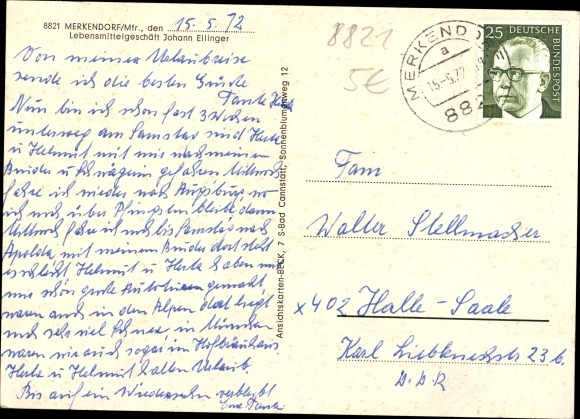 8821 MERKENDORF/Mfr., den 15.5.72
Lebensmittelgeschäft Johann Ellinger
Von meiner Urlaubsreise
sende ich die besten Grüße
Tante
Nun bin ich schon fast 3 Wochen
unterwegs am Samstag sind Herta
u Helmut mit mir nach meinem
Bruder u Schwägerin gefahren Mittwoch
fahre ich wieder nach Augsburg wo
ich noch über Pfingsten bleibe, dann
Mittwoch fahre ich noch bis Samstag nach
Apolda mit meinem Bruder dort steht
es schlecht Helmut u Herta haben mit
mir schön große Autotouren gemacht,
waren auch in den Alpen dort liegt
noch sehr viel Schnee in München
waren wir auch sogar im Hofbräuhaus
Herta u Helmut hatten Urlaub.
Bis auf ein Wiedersehn verbleibt
Eure Tante
Ansichtskarten-BECK, 7 S-Bad Cannstatt, Sonnenblumenweg 12
8821
5€
MERKENDORF
a
15.-5.72
882
25 DEUTSCHE BUNDESPOST
Fam
Walter Stellmacher
x402 Halle-Saale
Karl Liebknechtstr 23 b.
D.D.R